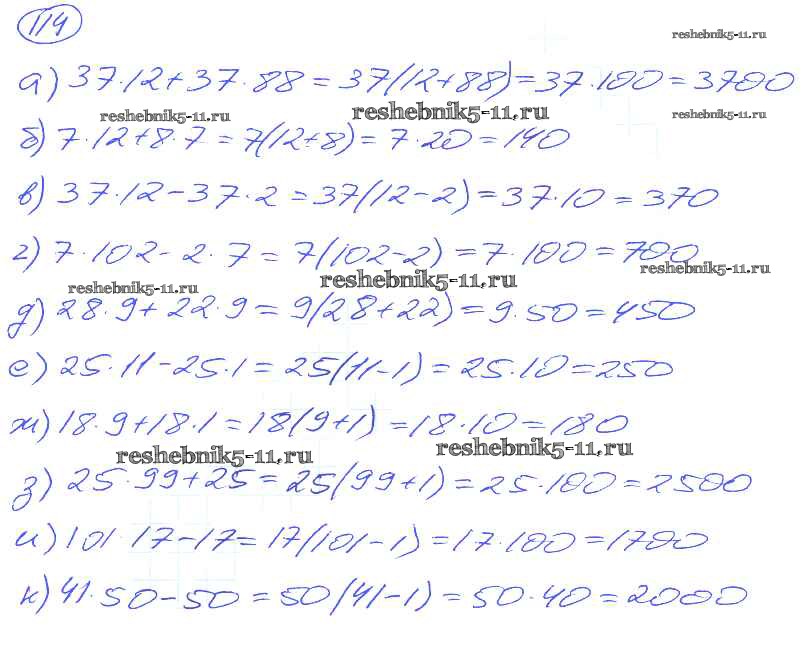 114
reshebnik5-11.ru
а) 37·12+37·88=37(12+88)=37·100=3700
reshebnik5-11.ru reshebnik5-11.ru reshebnik5-11.ru
б) 7·12+8·7=7(12+8)=7·20=140
в) 37·12-37·2=37(12-2)=37·10=370
г) 7·102-2·7=7(102-2)=7·100=700
reshebnik5-11.ru reshebnik5-11.ru reshebnik5-11.ru
д) 28·9+22·9=9(28+22)=9·50=450
е) 25·11-25·1=25(11-1)=25·10=250
ж) 18·9+18·1=18(9+1)=18·10=180
reshebnik5-11.ru reshebnik5-11.ru
з) 25·99+25=25(99+1)=25·100=2500
и) 101·17-17=17(101-1)=17·100=1700
к) 41·50-50=50(41-1)=50·40=2000